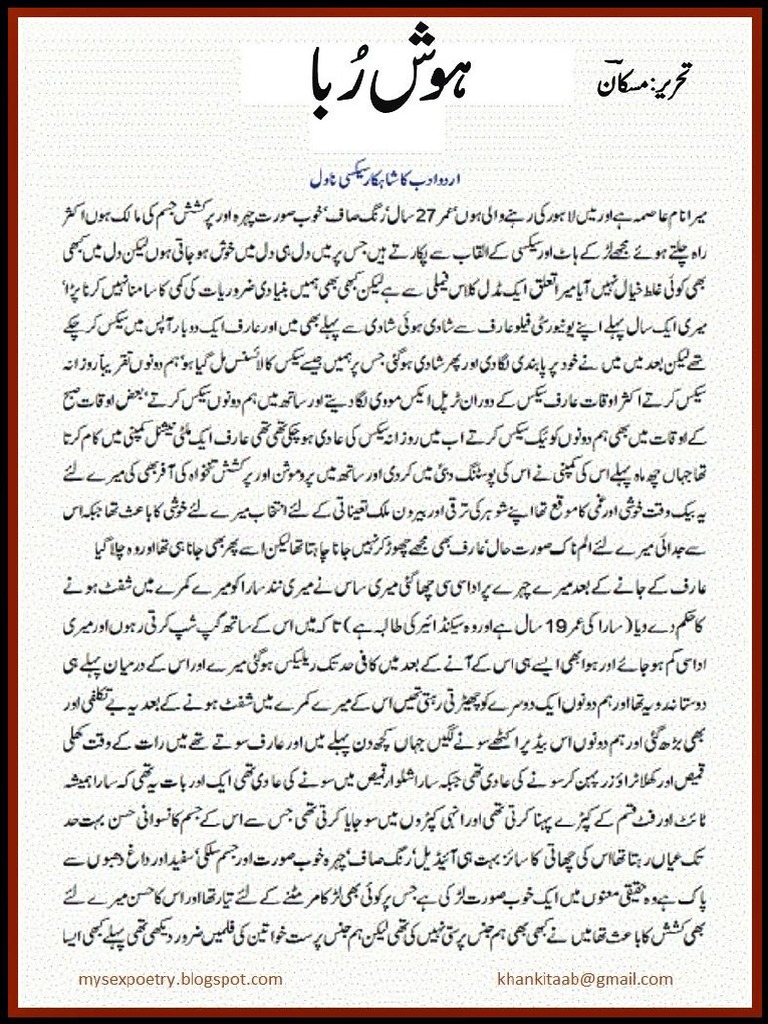 ہوش رُبا
تحریر: مسکان
اردو ادب کا شاہکار سیکسی ناول
میرا نام عاصمہ ہے اور میں لاہور کی رہنے والی ہوں‘ عمر 27 سال‘ رنگ صاف‘ خوب صورت چہرہ اور پرکشش جسم کی مالک ہوں اکثر
راہ چلتے ہوئے مجھے لڑکے ہاٹ اور سیکسی کے القاب سے پکارتے ہیں جس پر میں دل ہی دل میں خوش ہوجاتی ہوں لیکن دل میں کبھی
بھی کوئی غلط خیال نہیں آیا میرا تعلق ایک مڈل کلاس فیملی سے ہے لیکن کبھی بھی ہمیں بنیادی ضروریات کی کمی کا سامنا نہیں کرنا پڑا‘
میری ایک سال پہلے اپنے یونیورسٹی فیلو عارف سے شادی ہوئی شادی سے پہلے بھی میں اور عارف ایک دو بار آپس میں سیکس کرچکے
تھے لیکن بعد میں میں نے خود پر پابندی لگادی اور پھر شادی ہوگئی‘ جس پر ہمیں جیسے سیکس کا لائسنس مل گیا ہو‘ ہم دونوں تقریباً روزانہ
سیکس کرتے اکثر اوقات عارف سیکس کے دوران ٹرپل ایکس مووی لگادیتے اور ساتھ میں ہم دونوں سیکس کرتے‘ بعض اوقات صبح
کے اوقات میں بھی ہم دونوں کوئیک سیکس کرتے اب میں روزانہ سیکس کی عادی ہوچکی تھی تھی عارف ایک ملٹی نیشنل کمپنی میں کام کرتا
تھا جہاں چھ ماہ پہلے اس کی کمپنی نے اس کی پوسٹنگ دبئی میں کردی اور ساتھ میں پروموشن اور پرکشش تنخواہ کی آفر بھی کی میرے لئے
یہ بیک وقت خوشی اور غمی کا موقع تھا اپنے شوہر کی ترقی اور بیرون ملک تعیناتی کے لئے انتخاب میرے لئے خوشی کا باعث تھا جبکہ اس
سے جدائی میرے لئے الم ناک صورت حال‘ عارف بھی مجھے چھوڑ کر نہیں جانا چاہتا تھا لیکن اسے پھر بھی جانا ہی تھا اور وہ چلا گیا
عارف کے جانے کے بعد میرے چہرے پر اداسی سی چھا گئی میری ساس نے میری نند سارا کو میرے کمرے میں شفٹ ہونے
کا حکم دے دیا (سارا کی عمر 19 سال ہے اور وہ سیکنڈ ائیر کی طالبہ ہے) تاکہ میں اس کے ساتھ گپ شپ کرتی رہوں اور میری
اداسی کم ہوجائے اور ہوا بھی ایسے ہی اس کے آنے کے بعد میں کافی حد تک ریلیکس ہوگئی میرے اور اس کے درمیان پہلے ہی
دوستانہ رویہ تھا اور ہم دونوں ایک دوسرے کو چھیڑتی رہتی تھیں اس کے میرے کمرے میں شفٹ ہونے کے بعد یہ بے تکلفی اور
بھی بڑھ گئی اور ہم دونوں اس بیڈ پر اکٹھے سونے لگیں جہاں کچھ دن پہلے میں اور عارف سوتے تھے میں رات کے وقت کھلی
قمیص اور کھلا ٹراؤزر پہن کر سونے کی عادی تھی جبکہ سارا شلوار قمیص میں سونے کی عادی تھی ایک اور بات یہ تھی کہ سارا ہمیشہ
ٹائٹ اور فٹ قسم کے کپڑے پہنا کرتی تھی اور انہی کپڑوں میں سو جایا کرتی تھی جس سے اس کے جسم کا نسوانی حسن بہت حد
تک عیاں رہتا تھا اس کی چھاتی کا سائز بہت ہی آئیڈیل‘ رنگ صاف‘ چہرہ خوب صورت اور جسم سلکی‘ سفید اور داغ دھبوں سے
پاک ہے وہ حقیقی معنوں میں ایک خوب صورت لڑکی ہے جس پر کوئی بھی لڑکا مر مٹنے کے لئے تیار تھا اور اس کا حسن میرے لئے
بھی کشش کا باعث تھا میں نے کبھی بھی ہم جنس پرستی نہیں کی تھی لیکن ہم جنس پرست خواتین کی فلمیں ضرور دیکھی تھی پہلے کبھی ایسا
mysexpoetry.blogspot.com
khankitaab@gmail.com